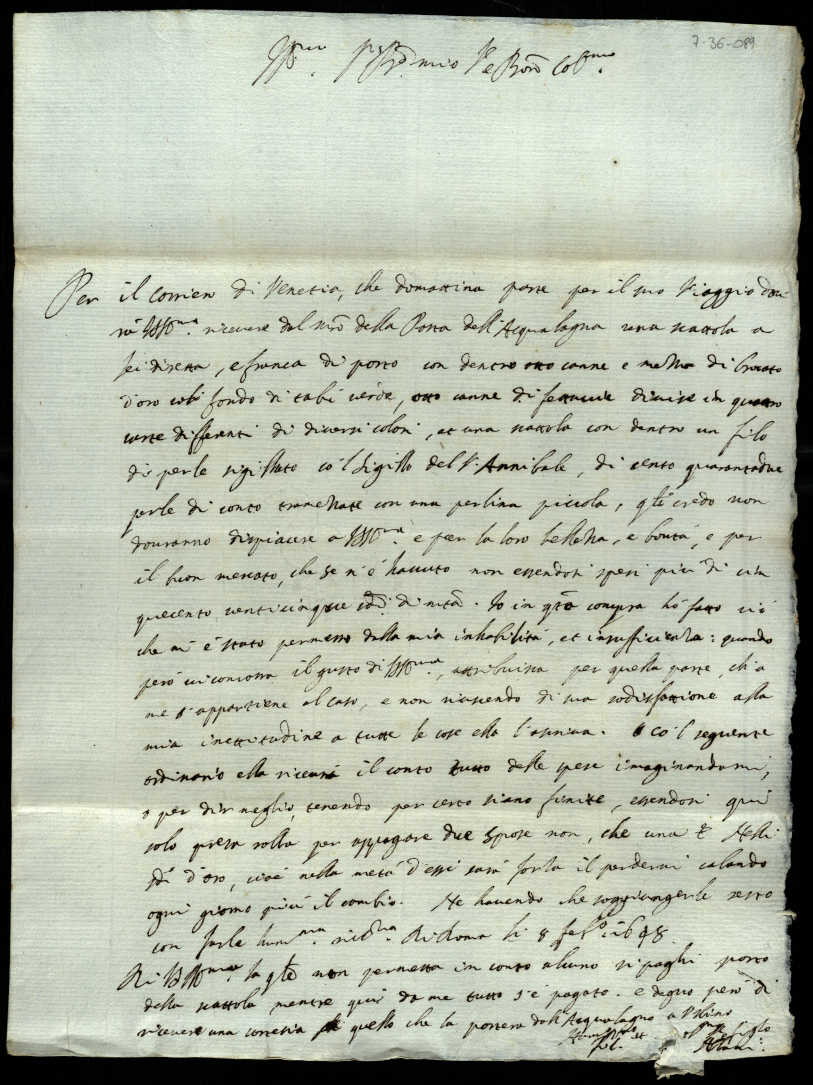 7-36-089
Ill.mo Sig.r mio e Pron Col.mo
Per il corriere di Venetia, che domattina parte per il suo viaggio dou
rà VSIll.ma riceuere dal mro della Posta dell'Acqualagna una scattola a
lei diretta, e franca di porto con dentro otto canne e mezza di brocato
d'oro col fondo di tabi verde, otto canne di fettuccie diuise in quattro
sorte differenti di diuersi colori, et una scattola con dentro un filo
di perle sigillato co'l sigillo del S.r Annibale, di cento quarantadue
perle di conto tramezzate con una perlina piccola, q.li credo non
douranno dispiacere a VSIll.ma e per la loro bellezza, e bontà, e per
il buon mercato, che se n'è hauuto non essendosi spesi più di cin
quecento venticinque sdi di mta. Io in qsta compra hò fatto ciò
che m'è stato permesso dalla mia inhabilità, et insufficienza: quando
però ui concorra il gusto di VSIll.ma, attribuisca per quella parte, ch'a
me s'appartiene al caso, e non riuscendo di sua sodisfattione alla
mia inettitudine a tutte le cose ella l'ascriua. Co'l seguente
ordinario ella riceuerà il conto tutto delle spese imaginandomi,
o per dir meglio, tenendo per certo siano finite, essendosi qui
solo presa rolla per appagare due spose non, che una E Nelli
sdi d'oro, cioè nella metà d'essi sarà forza il perderui calando
ogni giorno più il cambio. Ne hauendo che soggiungerle resto
con farle hum.ma riu.za Di Roma li 8 feb.o 1648
Di VSIll.ma la qle non permetta in conto alcuno si paghi porto
della scattola mentre qui da me tutto s'è pagato. e degno però di
riceuere una cortesia quello che la porterà dall'Acqualagna a Vrbino